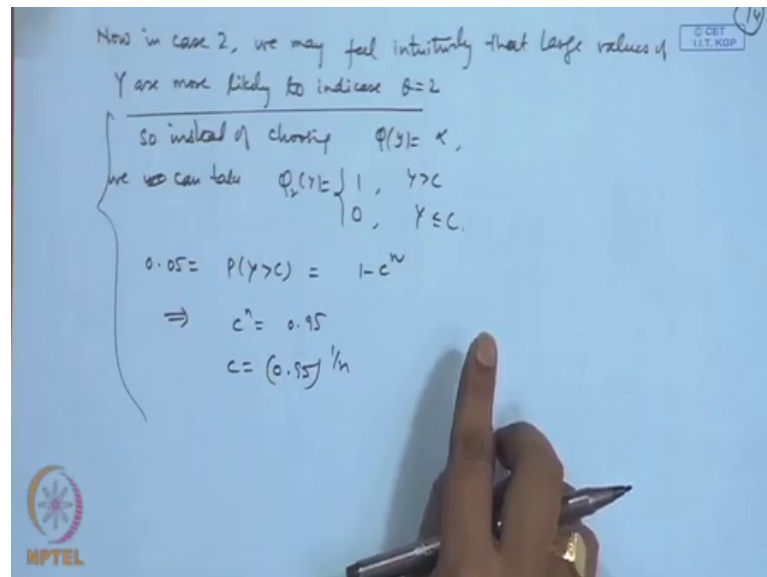 14
© CET
I.I.T. KGP
Now in case 2, we may feel intuitively that large values of
Y are more likely to indicase θ=2
So instead of choosing φ(y)= α,
we can take φ₂(Y)= { 1, Y>c
0, Y≤c.
0.05= P(Y>c) = 1-cⁿ
⇒ cⁿ= 0.95
c= (0.95)^1/n
NPTEL